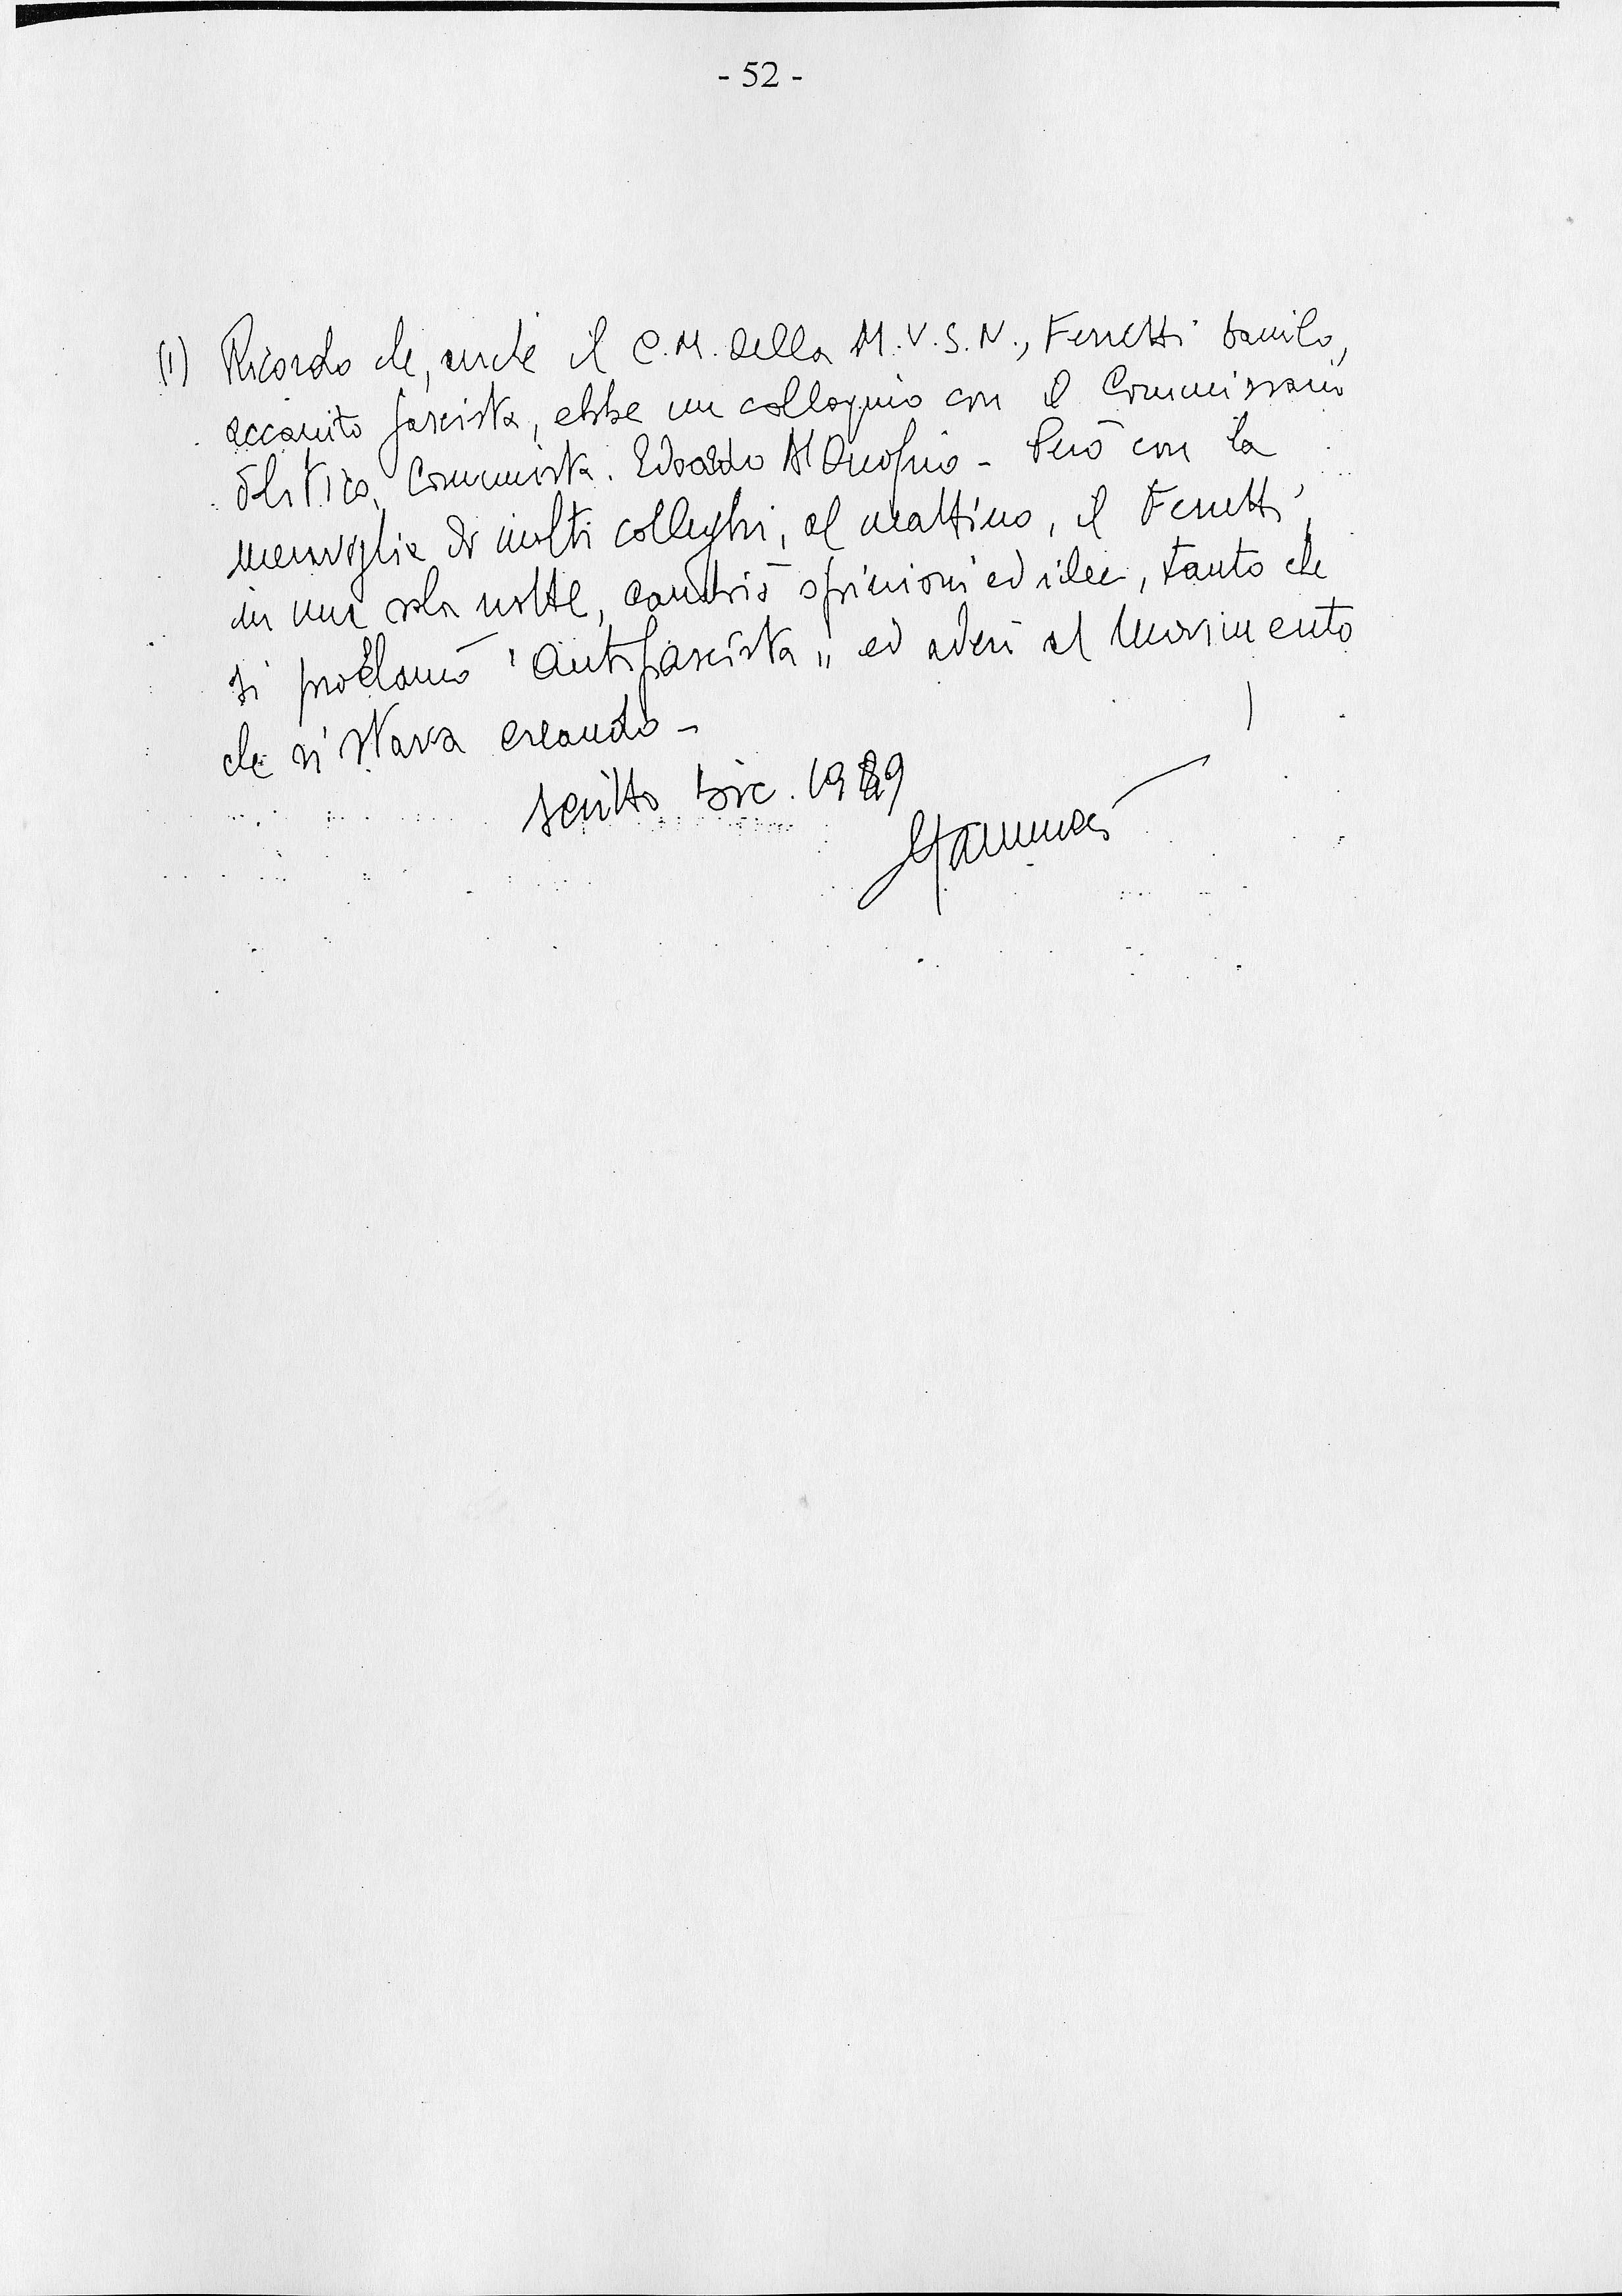 - 52 -
(1) Ricordo che, anche il C.M. della M.V.S.N., Ferretti Danilo,
accanito fascista, ebbe un colloquio con il Commissario
Politico, Comunista. Edoardo D'Onofrio - Però con la
meraviglia di molti colleghi, al mattino, il Ferretti,
in una sola notte, cambiò opinioni ed idee, tanto che
si proclamò "Antifascista" ed aderì al Movimento
che si stava creando -
scritto Dic. 1989